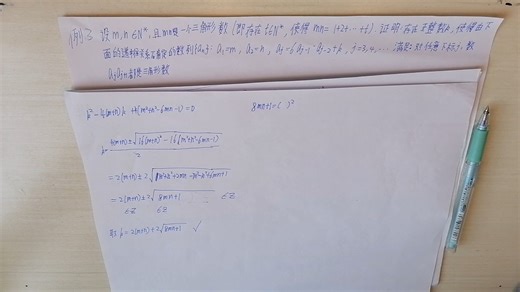 例3 设 m,n∈N*, 且 mn是一个三角形数 (即存在 t∈N*, 使得 mn=1+2+…+t). 证明:存在整数k, 使得由下
面的递推关系 确定的数列{aⱼ}: a₁=m, a₂=n, aⱼ=6aⱼ₋₁-aⱼ₋₂+k, j=3,4,… 满足:对任意下标j, 数
aⱼaⱼ₊₁都是三角形数
k²-4(m+n)k+4(m²+n²-6mn-1)=0
8mn+1=( )²
k=\frac{4(m+n)±\sqrt{16(m+n)²-16(m²+n²-6mn-1)}}{2}
=2(m+n)±2\sqrt{m²+n²+2mn-m²-n²+6mn+1}
=2(m+n)±2\sqrt{8mn+1} ∈Z
∈Z ∈Z
取 k=2(m+n)+2\sqrt{8mn+1} ✓